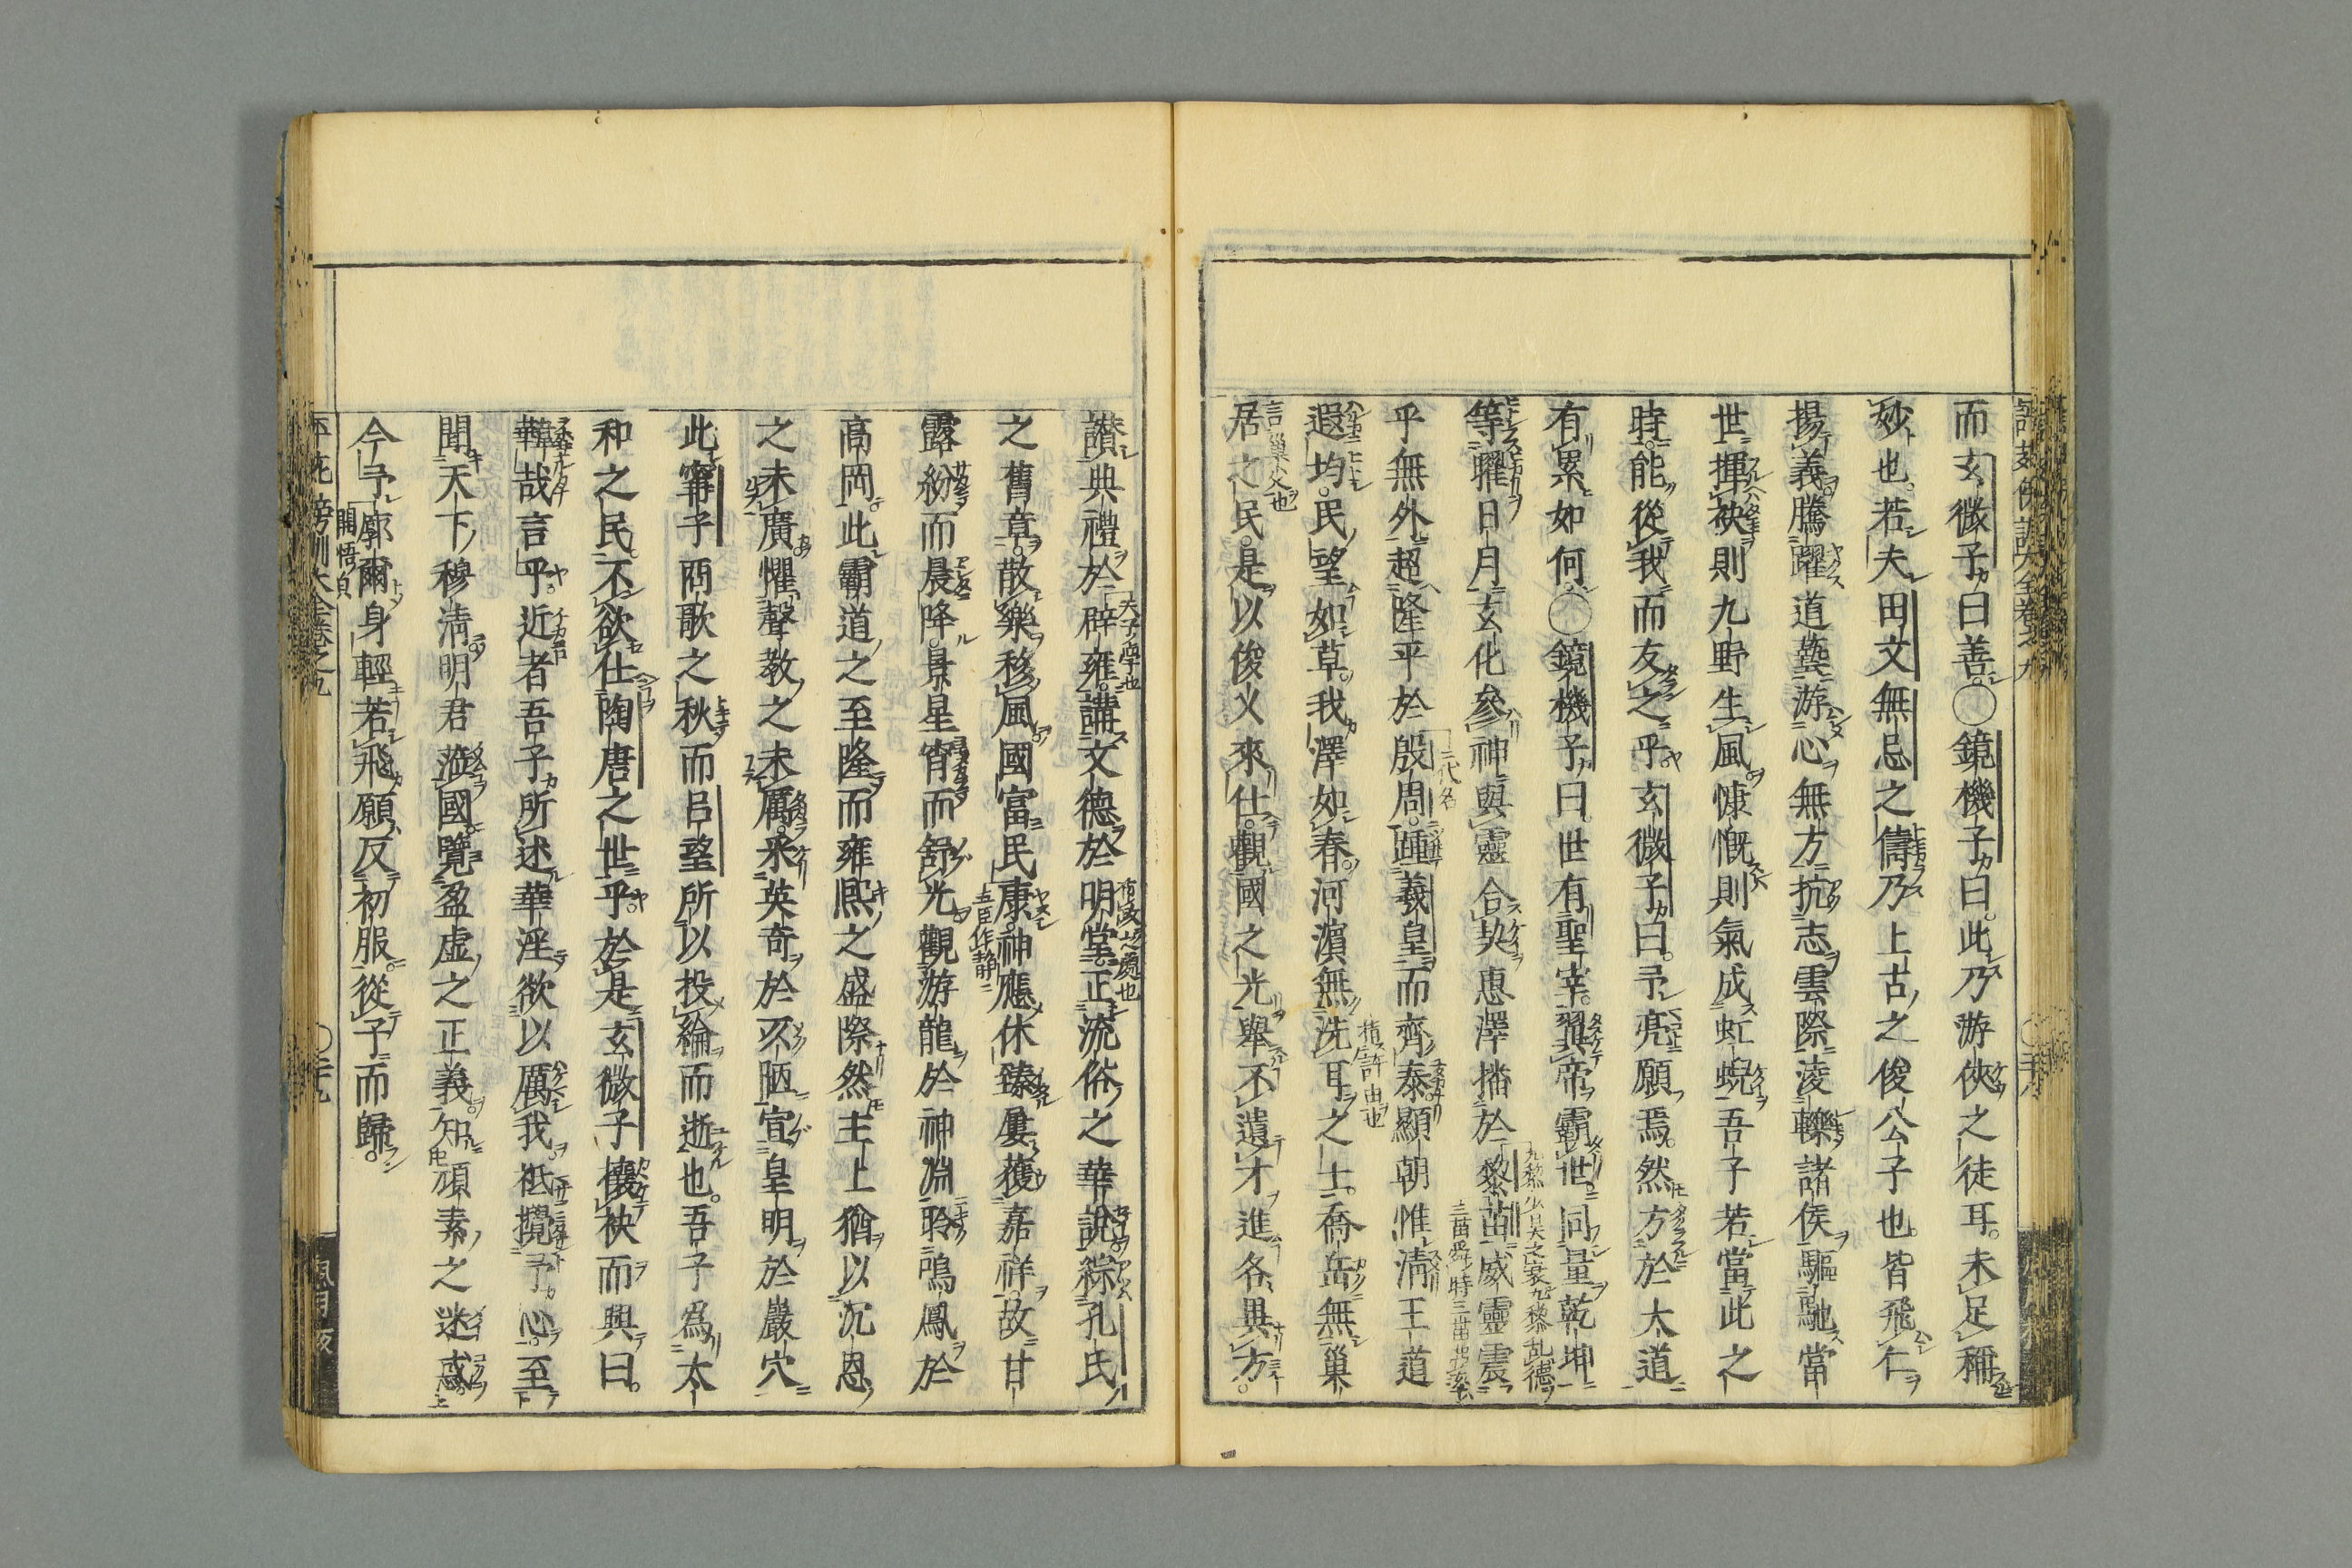 而玄微子曰善○鏡機子曰此乃游俠之徒耳未足稱
妙也若夫田文無忌之儔乃上古之俊公子也皆飛仁
揚義騰躍道藝游心無方抗志雲際淩轢諸侯驅馳當
世揮袂則九野生風慷慨則氣成虹蜺吾子若當此之
時能從我而友之乎玄微子曰予亮願焉然方於大道
有累如何○鏡機子曰世有聖宰翼帝霸世同量乾坤
等曜日月玄化參神與靈合契惠澤播於黎苗威靈震
乎無外超隆平於殷周踵羲皇而齊泰顯朝惟淸王道
遐均民望如草我澤如春河濵無洗耳之士喬岳無巢
居之民是以俊乂來仕觀國之光舉不遺才進各異方
讃典禮於辟雍講文德於明堂正流俗之華說綜孔氏
之舊章散樂移風國富民康神應休臻屢獲嘉祥故甘
露紛而晨降景星宵而舒光觀游龍於神淵聆鳴鳳於
高岡此霸道之至隆而雍熙之盛際然主上猶以沉恩
之未廣懼聲教之未厲采英奇於仄陋宣皇明於巖穴
此甯子商歌之秋而呂望所以投綸而逝也吾子爲太
和之民不欲仕陶唐之世乎於是玄微子攘袂而興曰
韡哉言乎近者吾子所述華淫欲以厲我祗攪予心至
聞天下穆淸明君蒞國覽盈虛之正義知頑素之迷惑
今予廓爾身輕若飛願反初服從子而歸